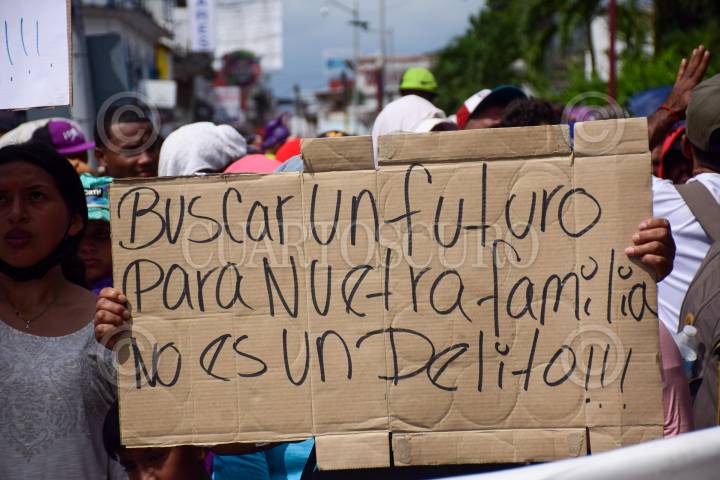 !!!
Buscar un futuro
Para Nuetra familia
No es un Delito!!!
CUARTOSCURO